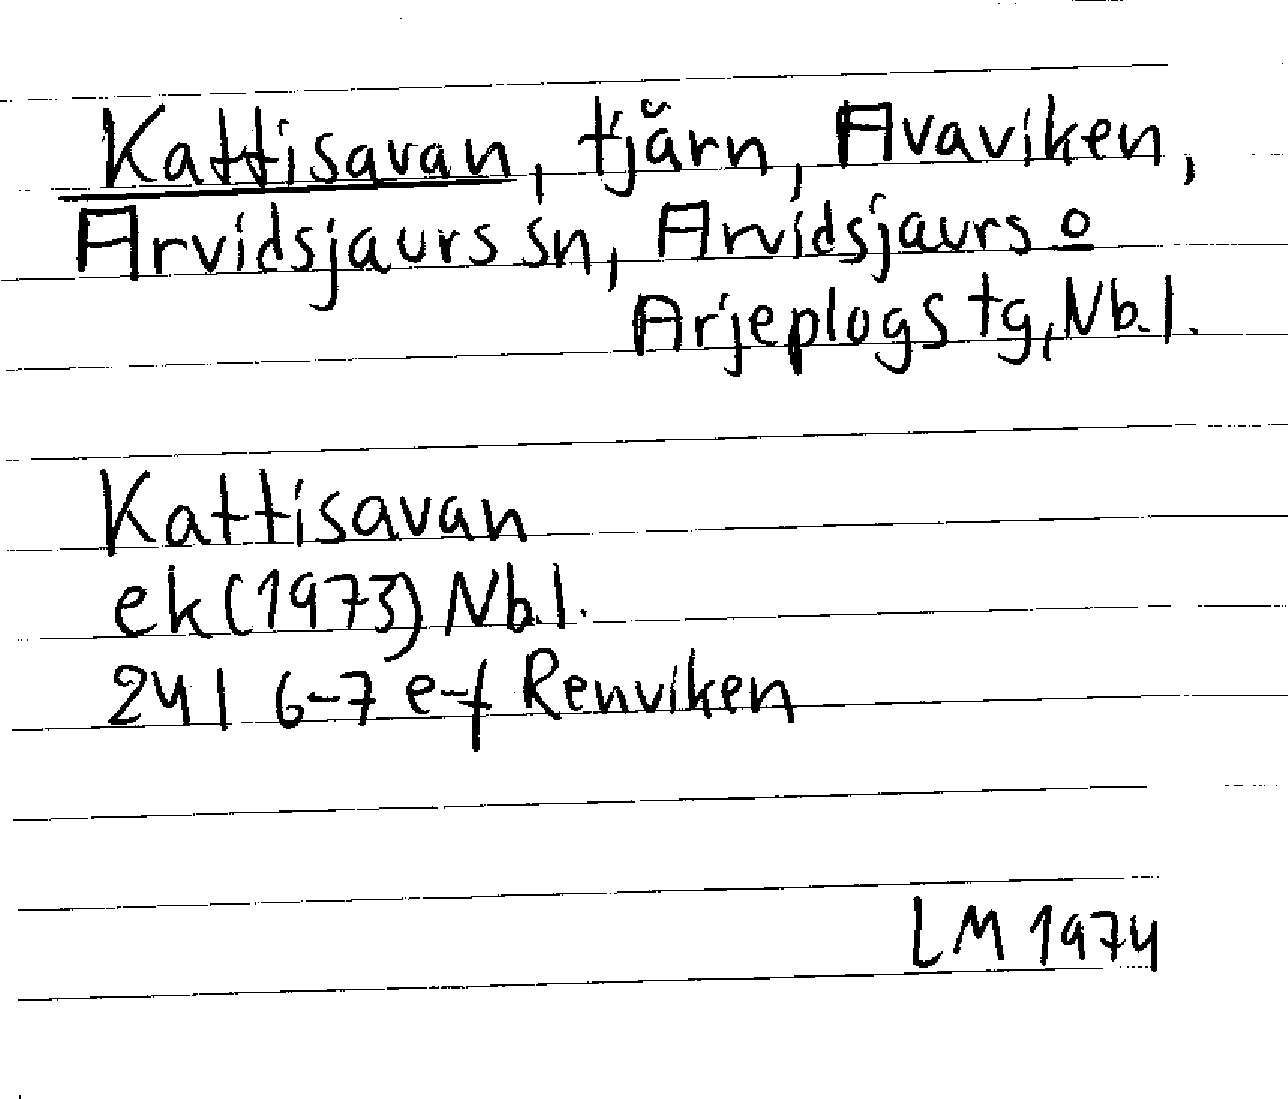 Kattisavan, tjärn, Avaviken,
Arvidsjaurs sn, Arvidsjaurs o
Arjeplogs tg, Nb.l.
Kattisavan
ek (1973) Nb.l.
24 I 6-7 e-f Renviken
LM 1974